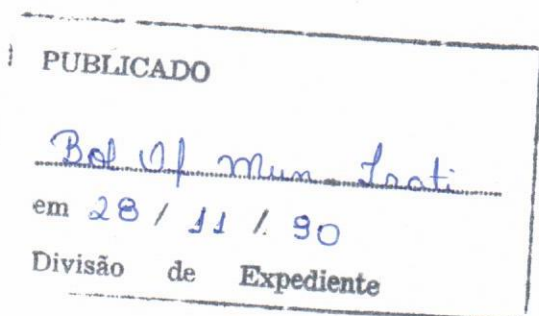 PUBLICADO
Bol Of Mun Irati
em 28 / 11 / 90
Divisão de Expediente